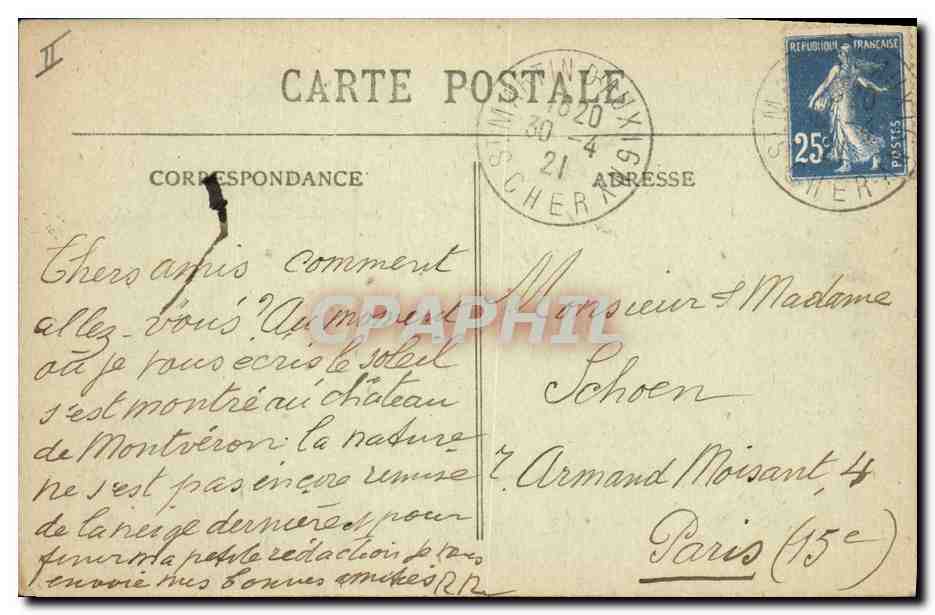 II
CARTE POSTALE
CORRESPONDANCE
ADRESSE
ST MARTIN D'AUXIGNY
1820
30 -4
21
CHER
REPUBLIQUE FRANÇAISE
25c
POSTES
CPAPHIL
Chers amis comment
allez-vous? Au moment
où je vous écris le soleil
s'est montré au château
de Montvéron. la nature
ne s'est pas encore remise
de la neige dernière et pour
finir ma petite rédaction je vous
envoie mes bonnes amitiés
Monsieur & Madame
Schoen
r. Armand Moisant, 4
Paris (15e)